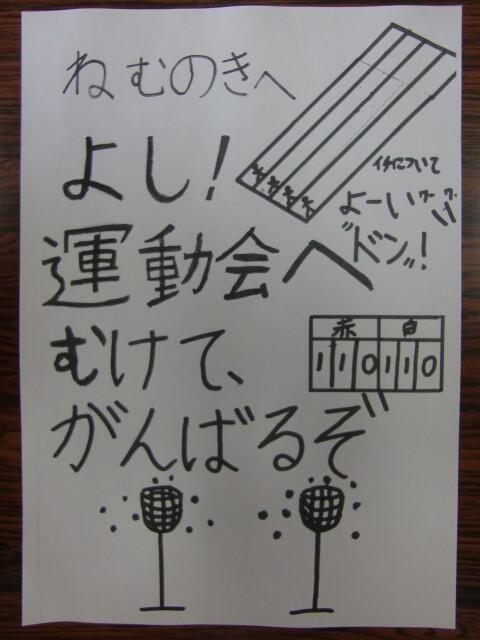 ねむのきへ
よし!
運動会へ
むけて、
がんばるぞ
イチについて
よーい
"ドン"!
赤 白
110 110